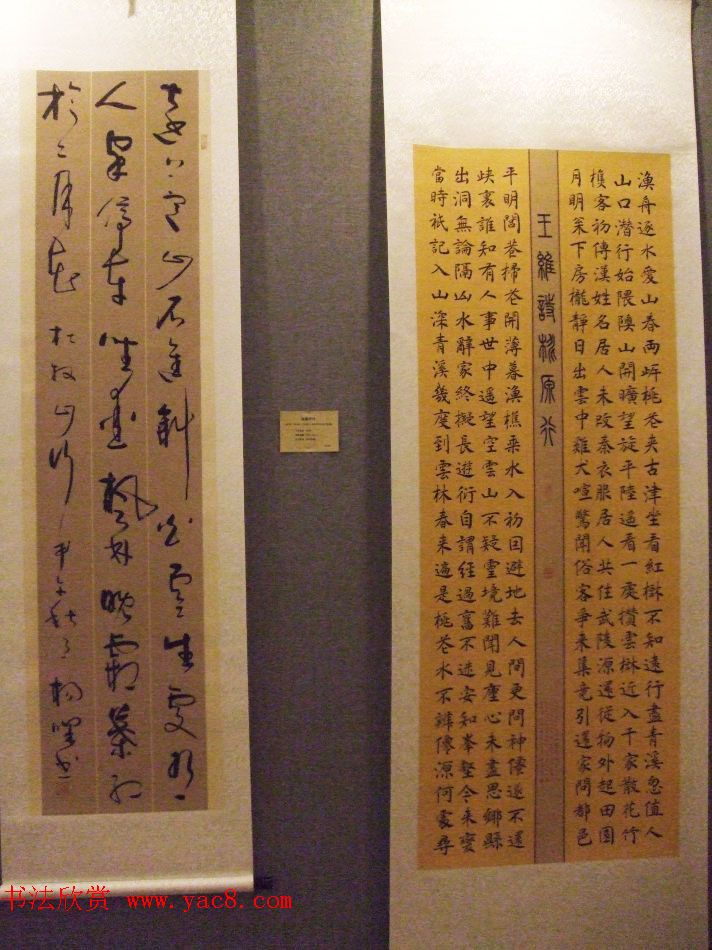 漁舟逐水愛山春两岍桃花夹古津坐看紅樹不知遠行盡青溪忽值人
山口潜行始隈隩山開曠望旋平陸遥看一處攢雲樹近入千家散花竹
樵客初傳漢姓名居人未改秦衣服居人共住武陵源還從物外起田園
月明松下房櫳靜日出雲中雞犬喧驚聞俗客爭来集竞引還家問都邑
王維詩桃原行
平明閭巷掃花開薄暮漁樵乘水入初因避地去人間更問神僊遂不還
峡裏誰知有人事世中遥望空雲山不疑靈境難聞見塵心未盡思鄉縣
出洞無論隔山水辭家終擬長遊衍自謂經過舊不迷安知峯壑今来變
當時祇記入山深青溪幾度到雲林春来遍是桃花水不辨僊源何處尋
遠上寒山石徑斜白雲生處有
人家停車坐愛楓林晚霜葉紅
於二月花 杜牧山行
书法欣赏 www.yac8.com